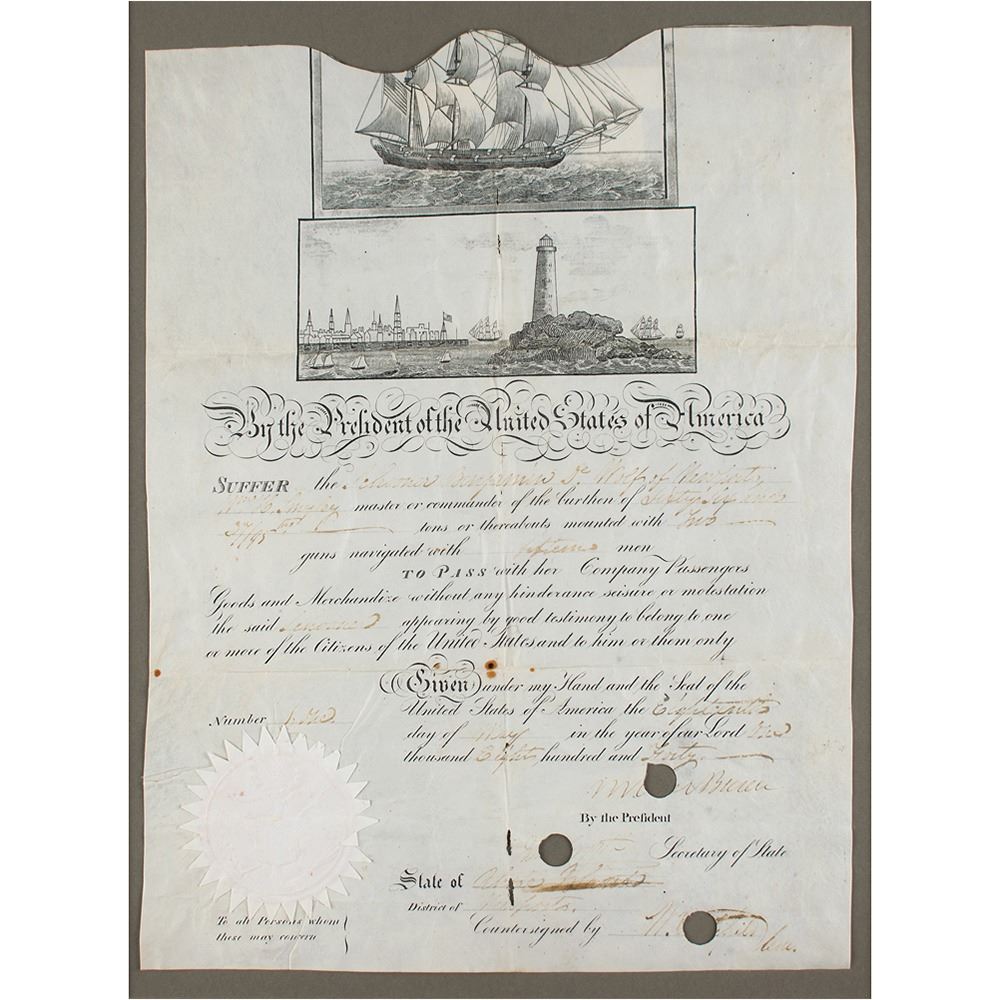 By the President of the United States of America
SUFFER the Schooner Benjamin D. Wolf of Newport
master or commander of the burthen of Sixty Six and
37/95 tons or thereabouts mounted with Two
guns navigated with fifteen men
TO PASS with her Company Passengers
Goods and Merchandize without any hinderance seisure or molestation
the said Schooner appearing by good testimony to belong to one
or more of the Citizens of the United States and to him or them only
Given under my Hand and the Seal of the
United States of America the Eighteenth
Number
day of May in the year of our Lord One
thousand Eight hundred and Forty
M Van Buren
By the President
Secretary of State
State of Rhode Island
District of Newport
To all Persons whom
these may concern
Countersigned by